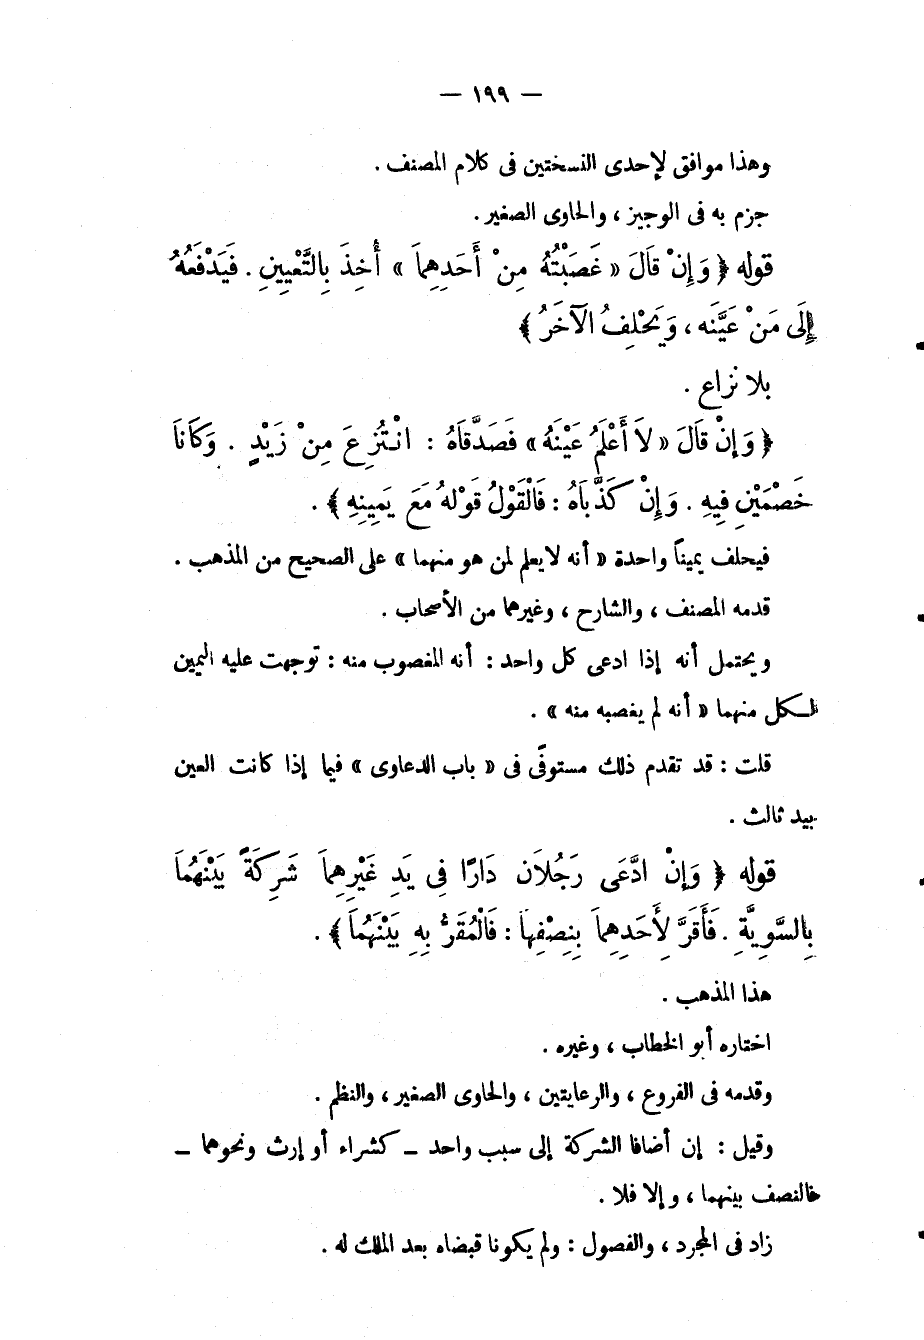 — ١٩٩ —
وهذا موافق لإحدى النسختين فى كلام المصنف .
جزم به فى الوجيز ، والحاوى الصغير .
قوله ﴿ وَإِنْ قَالَ « غَصَبْتُهُ مِنْ أَحَدِهِمَا » أُخِذَ بِالتَّعْيِينِ . فَيَدْفَعُهُ
إِلَى مَنْ عَيَّنَه ، وَيَحْلِفُ الآخَرُ ﴾
بلا نزاع .
﴿ وَإِنْ قَالَ « لاَ أَعْلَمُ عَيْنَهُ » فَصَدَّقَاهُ : انْتُزِعَ مِنْ زَيْدٍ . وَكَانَا
خَصْمَيْنِ فِيهِ . وَإِنْ كَذَّبَاهُ : فَالْقَوْلُ قَوْلهُ مَعَ يَمِينِهِ ﴾ .
فيحلف يميناً واحدة « أنه لا يعلم لمن هو منهما » على الصحيح من المذهب .
قدمه المصنف ، والشارح ، وغيرهما من الأصحاب .
ويحتمل أنه إذا ادعى كل واحد : أنه المغصوب منه : توجهت عليه اليمين
لكل منهما « أنه لم يغصبه منه » .
قلت : قد تقدم ذلك مستوفًى فى « باب الدعاوى » فيما إذا كانت العين
بيد ثالث .
قوله ﴿ وَإِنْ ادَّعَى رَجُلاَن دَارًا فِى يَدِ غَيْرِهِمَا شَرِكَةً بَيْنَهُمَا
بِالسَّوِيَّةِ . فَأَقَرَّ لِأَحَدِهِمَا بِنِصْفِهَا : فَالْمُقَرُّ بِهِ بَيْنَهُمَا ﴾ .
هذا المذهب .
اختاره أبو الخطاب ، وغيره .
وقدمه فى الفروع ، والرعايتين ، والحاوى الصغير ، والنظم .
وقيل : إن أضافا الشركة إلى سبب واحد ــ كشراء أو إرث ونحوهما ــ
فالنصف بينهما ، وإلا فلا .
زاد فى المجرد ، والفصول : ولم يكونا قبضاه بعد الملك له .